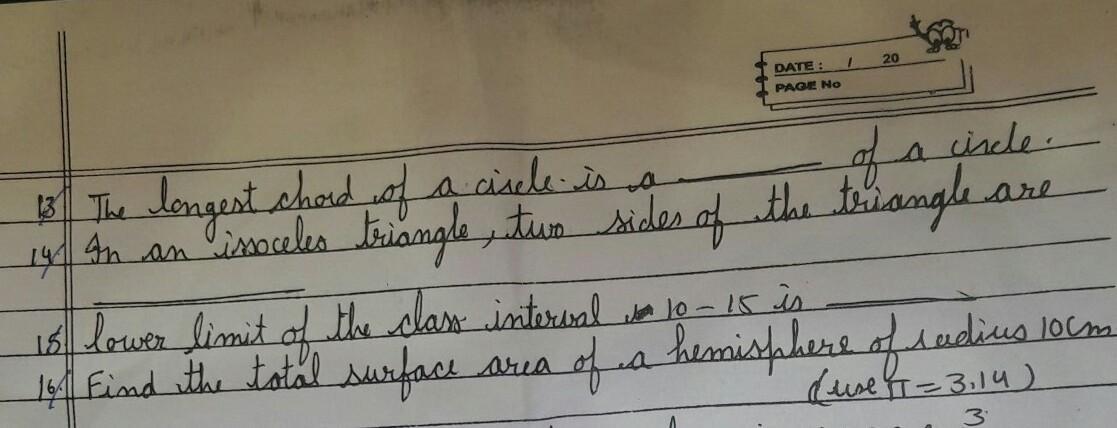 DATE: / 20
PAGE No
13 The longest chord of a circle is a ______ of a circle.
14 In an issoceles triangle, two sides of the triangle are
______
15 lower limit of the class interval 10-15 is ______
16 Find the total surface area of a hemisphere of radius 10cm
(use π = 3.14)
3